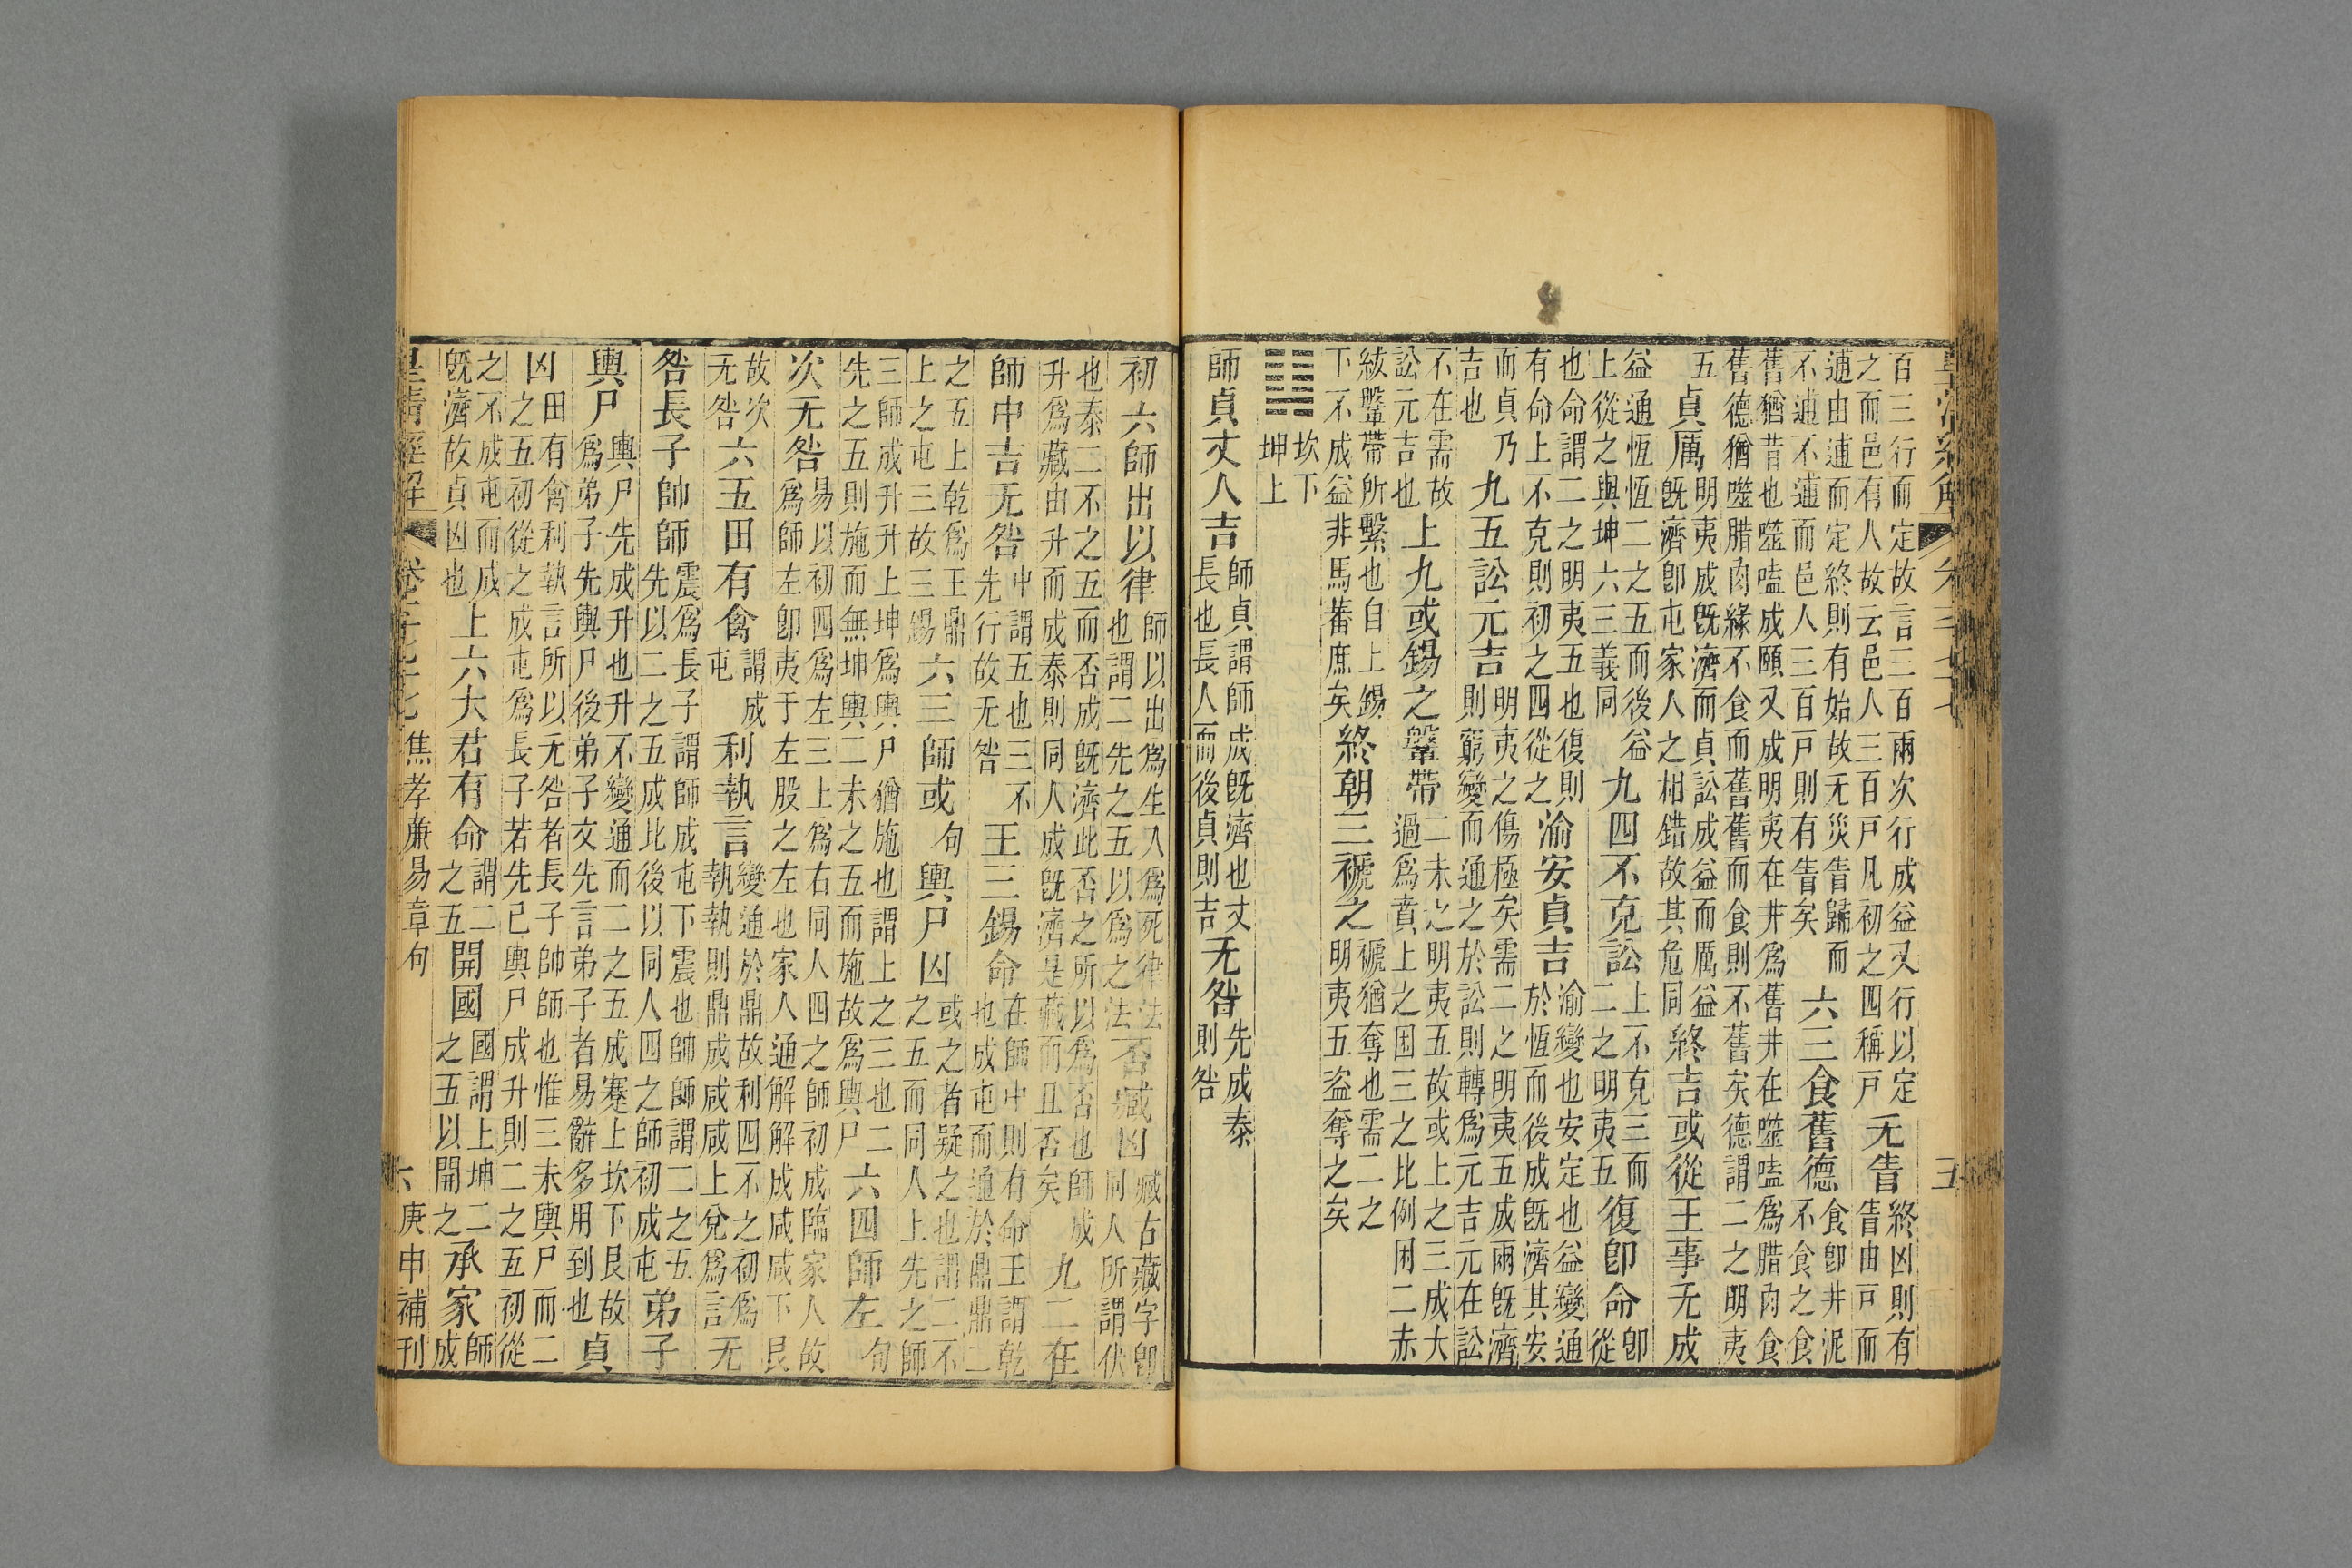 百三行而定故言三百兩次行成益又行以定之而邑有人故云邑人三百戸凡初之四稱戸无眚終凶則有眚由戸而
逋由逋而定終則有始故无災眚歸而不逋不逋而邑人三百戸則有眚矣六三食舊德食卽井泥不食之食
舊猶昔也噬嗑成頤又成明夷在井爲舊井在噬嗑爲腊肉食舊德猶噬腊肉緣不食而舊舊而食則不舊矣德謂二之明夷
五貞厲明夷成旣濟而貞訟成益而厲益旣濟卽屯家人之相錯故其危同終吉或從王事无成
益通恆恆二之五而後益上從之與坤六三義同九四不克訟上不克三而二之明夷五復卽命卽從
也命謂二之明夷五也復則有命上不克則初之四從之渝安貞吉渝變也安定也益變通於恆而後成旣濟其安
而貞乃吉也九五訟元吉明夷之傷極矣需二之明夷五成兩旣濟則窮變而通之於訟則轉爲元吉元在訟
不在需故訟元吉也上九或錫之鞶帶二未之明夷五故或上之三成大過爲賁上之困三之比例困二赤
紱鞶帶所繫也自上錫下不成益非馬蕃庶矣終朝三褫之褫猶奪也需二之明夷五盜奪之矣
坎下坤上
師貞丈人吉師貞謂師成旣濟也丈長也長人而後貞則吉无咎先成泰則咎
初六師出以律師以出爲生入爲死律法也謂二先之五以爲之法否臧凶臧古藏字卽同人所謂伏
也泰二不之五而否成旣濟此否之所以爲否也師成升爲藏由升而成泰則同人成旣濟是藏而且否矣九二在
師中吉无咎中謂五也三不先行故无咎王三錫命在師中則有命王謂乾也成屯而通於鼎鼎二
之五上乾爲王鼎上之屯三故三錫六三師或句輿尸凶或之者疑之也謂二不之五而同人上先之師
三師成升升上坤爲輿尸猶施也謂上之三也二先之五則施而無坤輿二未之五而施故爲輿尸六四師左句
次无咎易以初四爲左三上爲右同人四之師初成臨家人故爲師左卽夷于左股之左也家人通解解成咸咸下艮
故次无咎六五田有禽謂成屯利執言變通於鼎故利四不之初爲執執則鼎成咸咸上兌爲言无
咎長子帥師震爲長子謂師成屯下震也帥師謂二之五先以二之五成比後以同人四之師初成屯弟子
輿尸輿尸先成升也升不變通而二之五成蹇上坎下艮故爲弟子先輿尸後弟子文先言弟子者易辭多用到也貞
凶田有禽利執言所以无咎者長子帥師也惟三未輿尸而二之五初從之成屯爲長子若先已輿尸成升則二之五初從
之不成屯而成旣濟故貞凶也上六大君有命謂二之五開國國謂上坤二之五以開之承家師成
皇清經解 焦孝廉易章句 六 庚申補刊